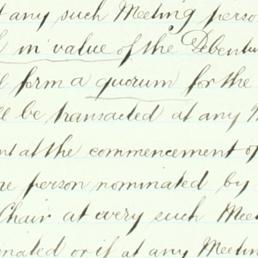 t any such Meeting perso
in value of the Debentu
form a quorum for the
ll be transacted at any
nt at the commencement of
ne person nominated by
Chair at every such Mee
inated or if at any Meeting